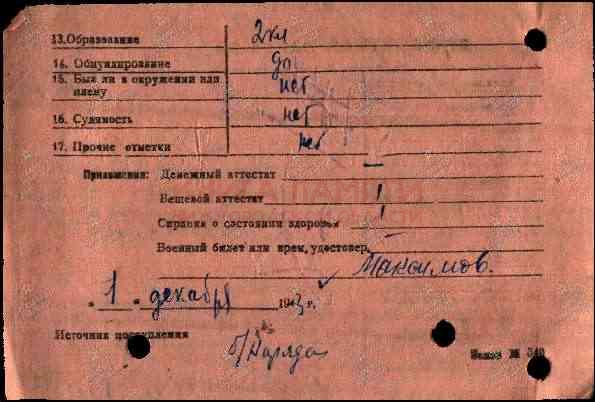 13. Образование 2кл
14. Обмундирование до
15. Был ли в окружении или плену нет
16. Судимость нет
17. Прочие отметки нет
Приложения: Денежный аттестат —
Вещевой аттестат 1
Справка о состоянии здоровья 1
Военный билет или врем. удостовер.
Максимов.
„ 1 " декабря 1943 г.
Источник поступления
б/Наряда
Заказ № 340